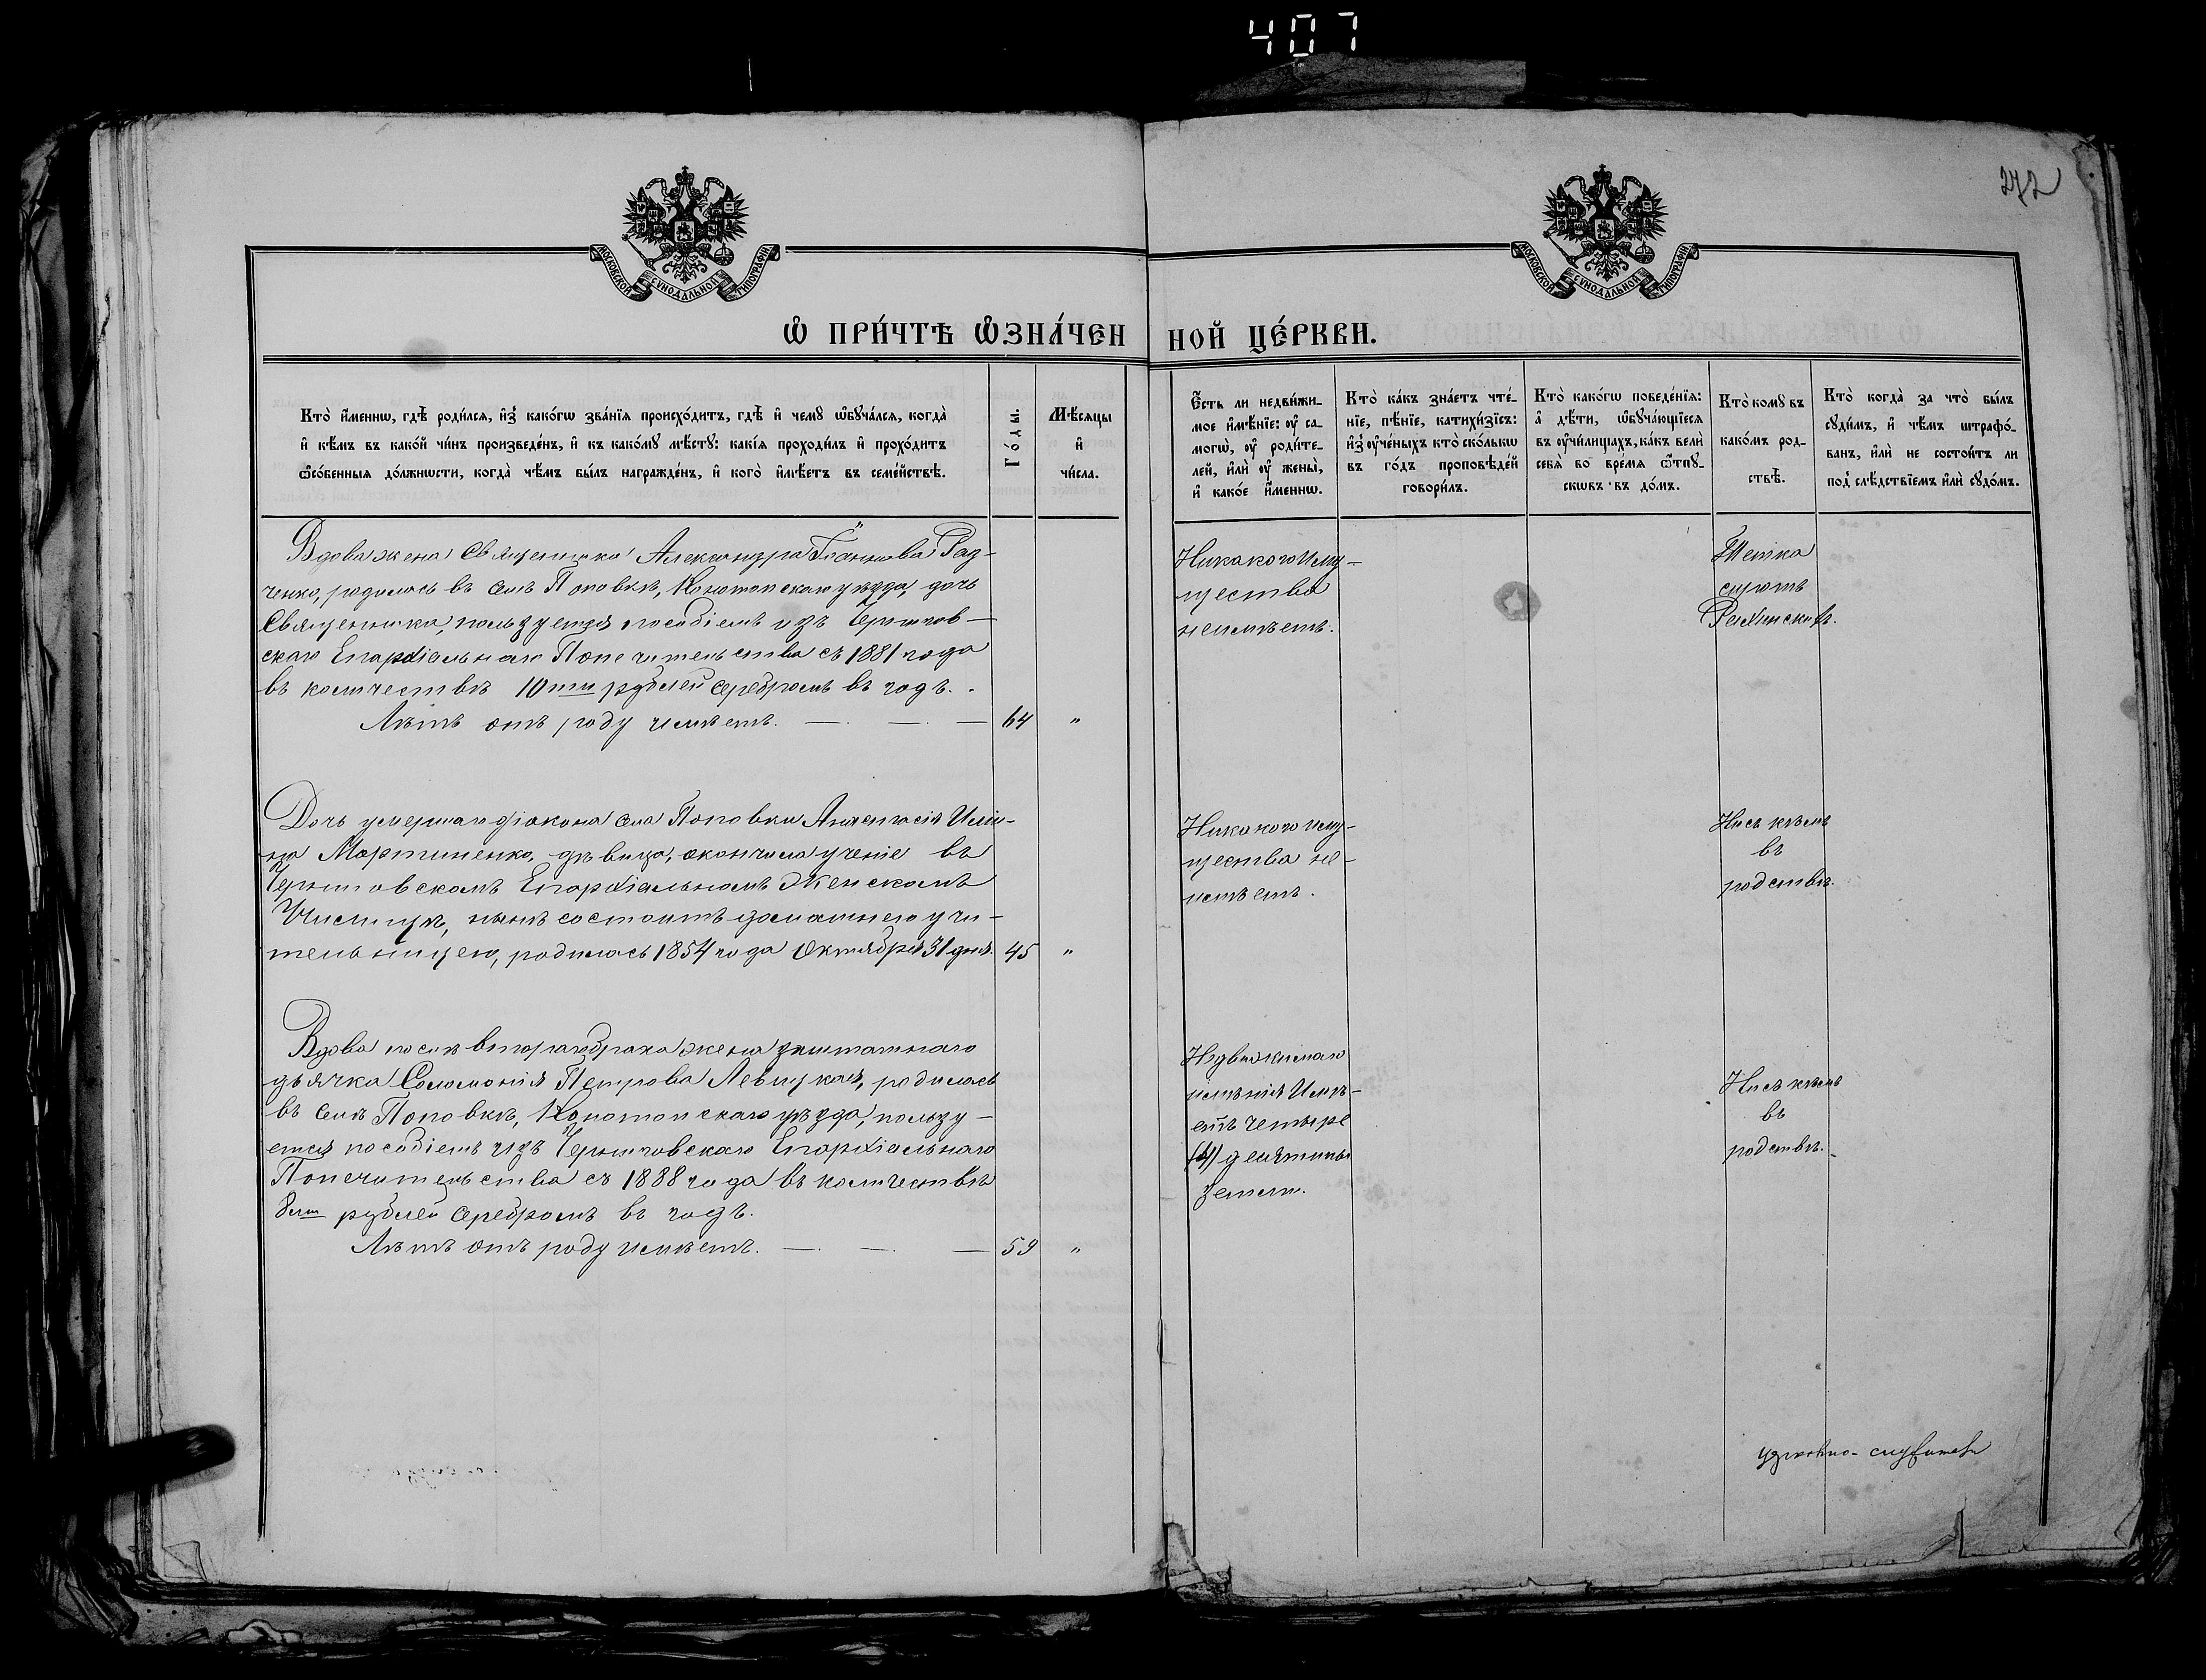 407
272
МОСКОВСКОЙ СѴНОДАЛЬНОЙ ТИПОГРАФІИ
МОСКОВСКОЙ СѴНОДАЛЬНОЙ ТИПОГРАФІИ
Ѡ ПРИ́ЧТѢ Ѡ҆ЗНА́ЧЕННОЙ ЦЕ́РКВИ.
Кто̀ и҆́меннѡ, гдѣ̀ роди́лся, и҆з̾ како́гѡ зва́нїя происхо́дитъ, гдѣ̀ и҆ чемꙋ̀ ѡ҆бꙋча́лся, когда̀
и҆ кѣ́мъ въ како́й чи́нъ произведе́нъ, и҆ къ како́мꙋ мѣ́стꙋ: какі̑я проходи́лъ и҆ прохо́дитъ
ѡ҆со́бенныя до́лжнѡсти, когда̀ чѣ́мъ бы́лъ награжде́нъ, и҆ кого̀ и҆мѣ́етъ въ семе́йствѣ.
Го́ды.
Мѣ́сяцы
и҆
чи́сла.
Е҆́сть ли недви́жи-
мое и҆мѣ́нїе: ᲂу҆ са-
могѡ̀, ᲂу҆ роди́те-
лей, и҆лѝ ᲂу҆ жены̀,
и҆ како́е и҆́меннѡ.
Кто̀ ка́къ зна́етъ чте́-
нїе, пѣ́нїе, катихи́зїсъ:
и҆з̾ ᲂу҆че́ныхъ кто̀ ско́лькѡ
въ го́дъ проповѣ́дей
говори́лъ.
Кто̀ како́гѡ поведе́нїя:
а҆ дѣ́ти, ѡ҆бꙋча́ющїеся
въ ᲂу҆чи́лищахъ, ка́къ велѝ
себѧ̀ во вре́мя ѿпꙋ-
скѡвъ въ до́мъ.
Кто̀ комꙋ̀ въ
како́мъ род-
ствѣ̀.
Кто̀ когда̀ за что̀ бы́лъ
сꙋди́мъ, и҆ чѣ́мъ штрафо́-
ванъ, и҆лѝ не состои́тъ ли
под̾ слѣ́дствїемъ и҆лѝ сꙋдо́мъ.
Вдова жена Священника Александра Іоаннова Раз-
ченко, родилась въ селѣ Поповкѣ, Конотопскаго уѣзда, дочь
Священника, пользуется пособіемъ изъ Чернигов-
скаго Епархіальнаго Попечительства съ 1881 года
въ количествѣ 10ти рублей серебромъ въ годъ.
Лѣтъ отъ роду имѣетъ. — . — . — 64 "
Никакого Иму-
щества
неимѣетъ.
Тетка
сиротъ
Дочь умершаго діакона села Поповки Анастасія Ильи-
на Мартиненко, дѣвица, окончила ученіе въ
Черниговскомъ Епархіальномъ Женскомъ
Училищѣ, нынѣ состоитъ домашнею учи-
тельницею, родилась 1854 года Октября 31 дня. 45 "
Никакого Иму-
щества не-
имѣетъ.
Ни съ кѣмъ
въ
родствѣ.
Вдова послѣ втораго брака жена заштатнаго
дьячка Соломонія Петрова Левицкая, родилась
въ селѣ Поповкѣ, Конотопскаго уѣзда, пользу-
ется пособіемъ изъ Черниговскаго Епархіальнаго
Попечительства съ 1888 года въ количествѣ
8ми рублей серебромъ въ годъ.
Лѣтъ отъ роду имѣетъ. — . — . — 59 "
Недвижимаго
имѣнія Имѣ-
етъ четыре
(4) десятины
земли.
Ни съ кѣмъ
въ
родствѣ.